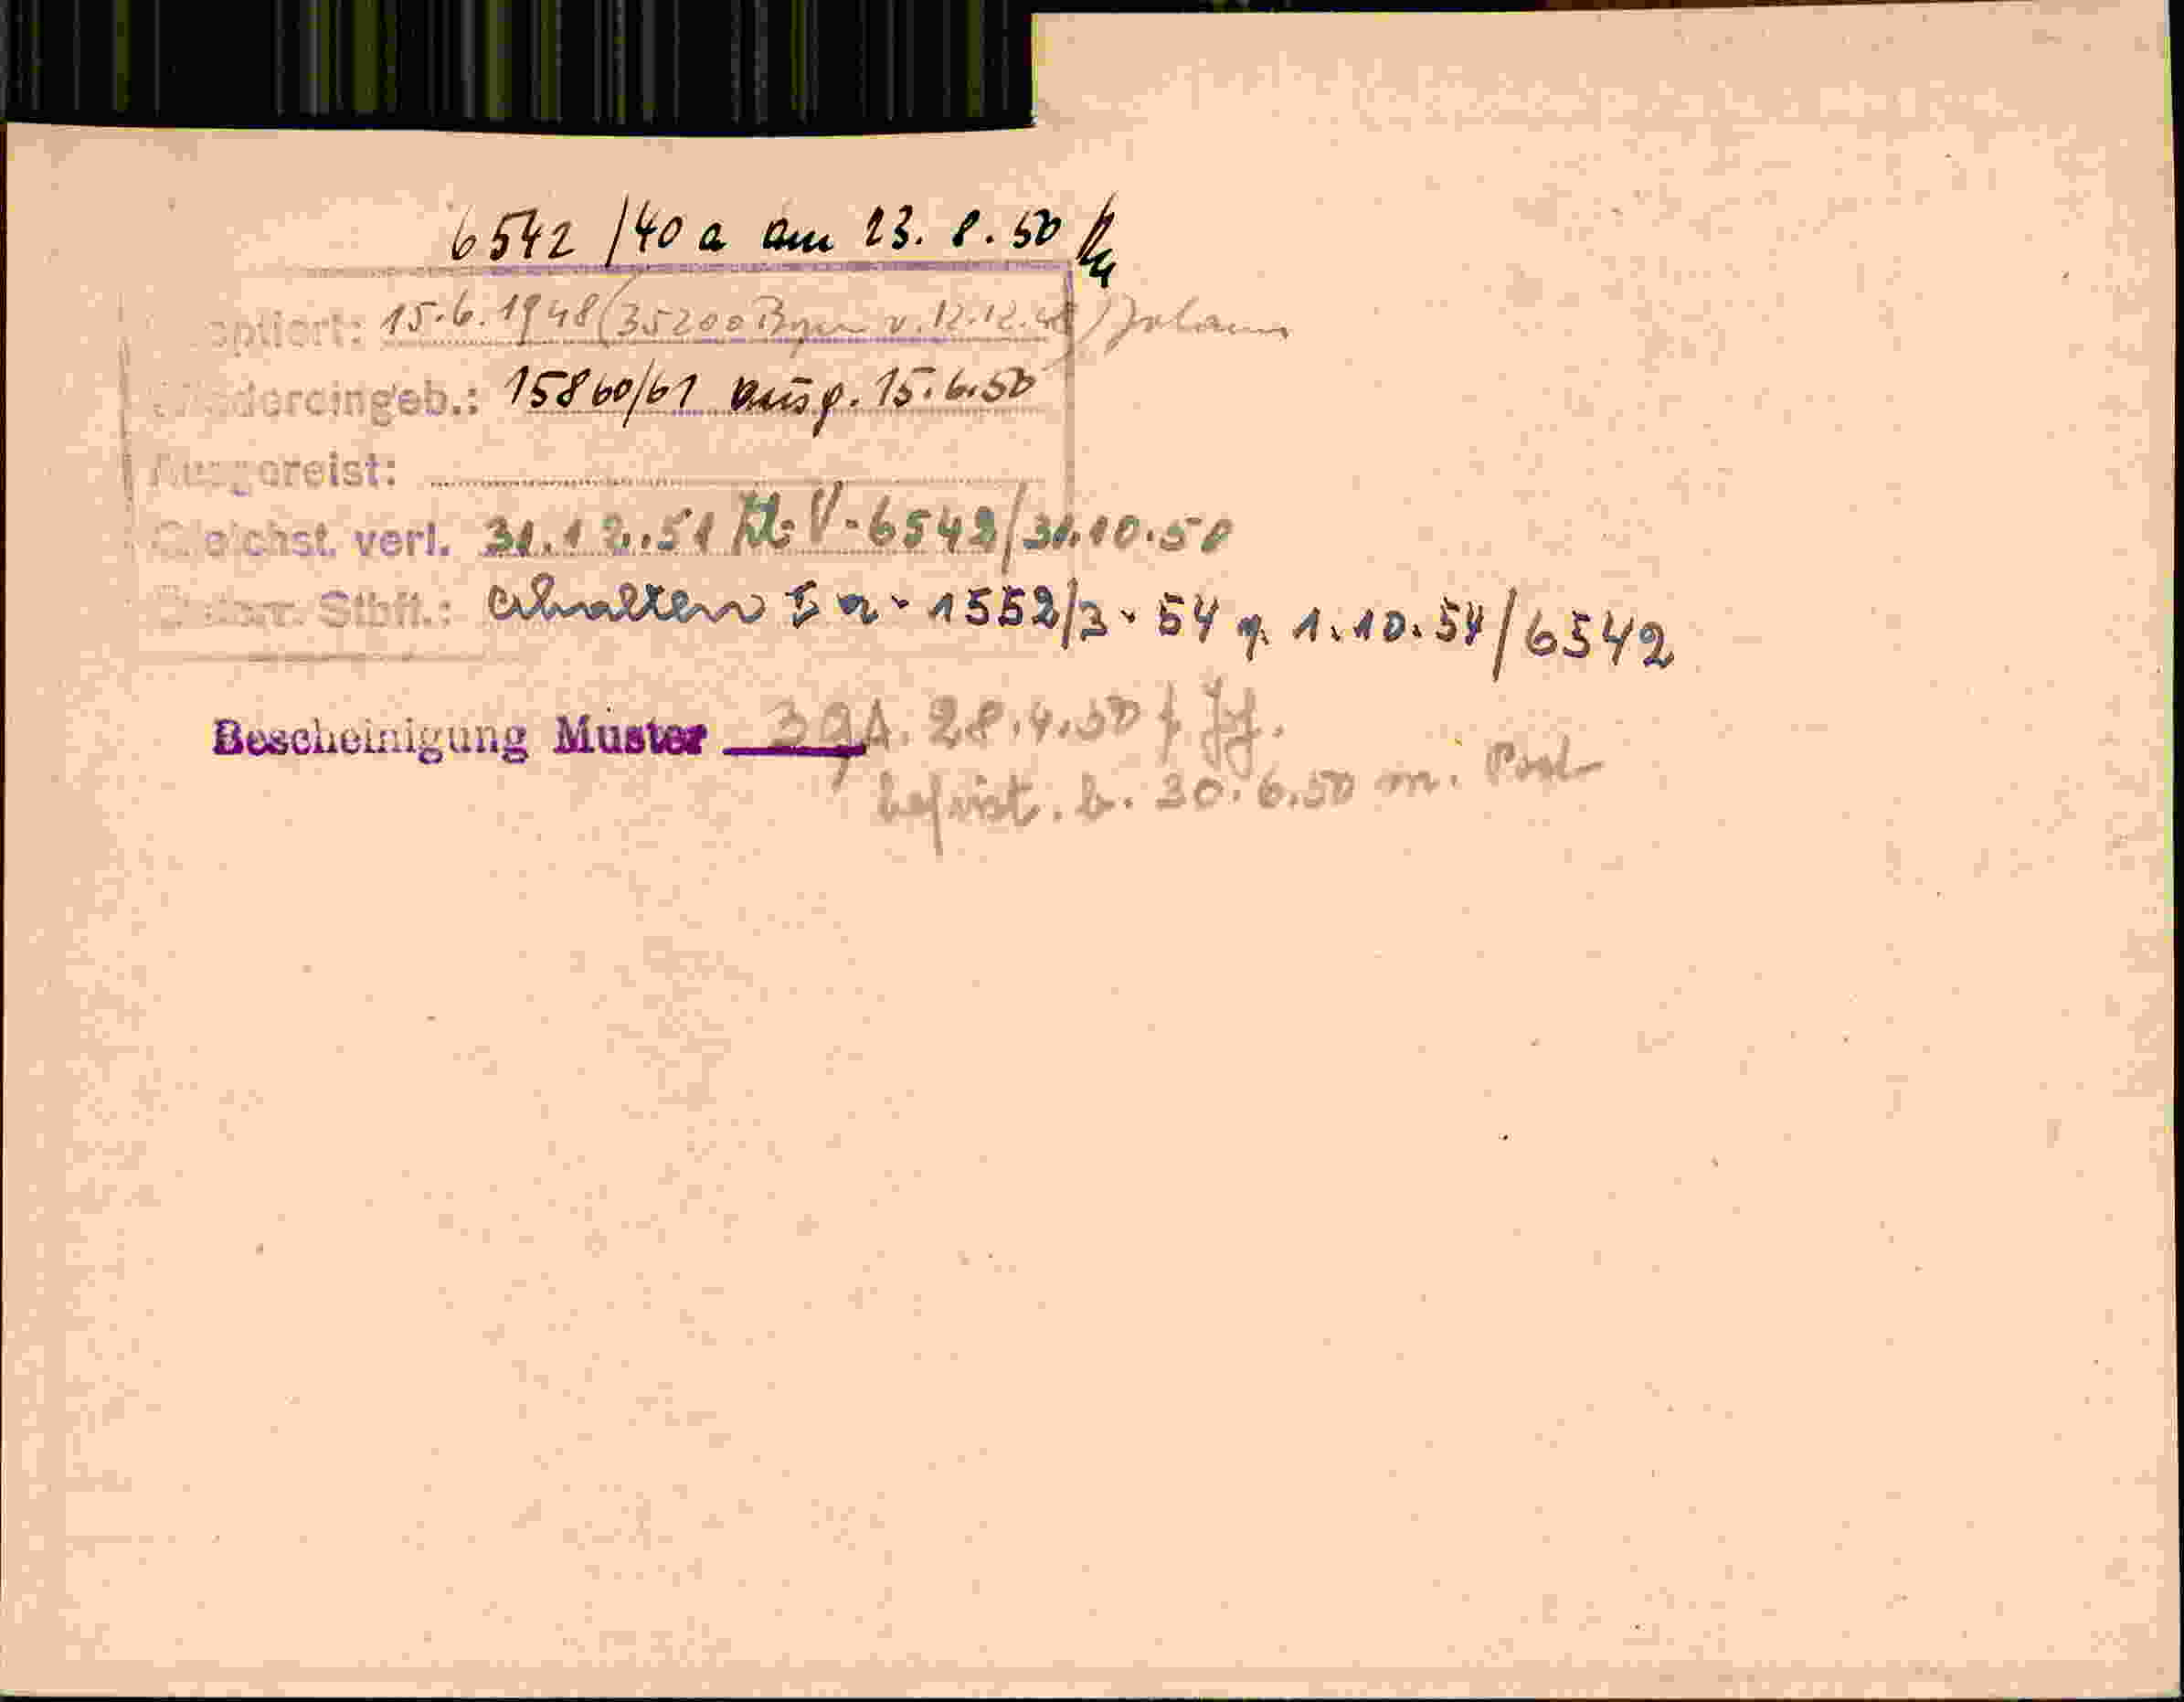 6542/40 a am 23. 8. 50
optiert: 15.6.1948 (35200 v. 12.12.48)
Wiedereingeb.: 15860/61 ausg. 15.6.50
Ausgereist:
Gleichst. verl. 31.12.51 V-6542/31.10.50
Stbft.: erhalten I a - 1552/3 - 54 g. 1.10.54/6542
Bescheinigung Muster 39A. 28.4.50
befrist. b. 30.6.50 m.